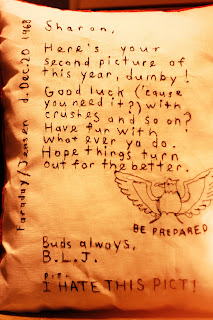 Sharon,
Here's your
second picture of
this year, dumby!
Good luck ('cause
you need it?) with
crushes and so on?
Have fun with
what ever ya do.
Hope things turn
out for the better.
BE PREPARED
Buds always,
B.L.J.
I HATE THIS PICT!
Faraday/Jensen d. Dec. 20 1968